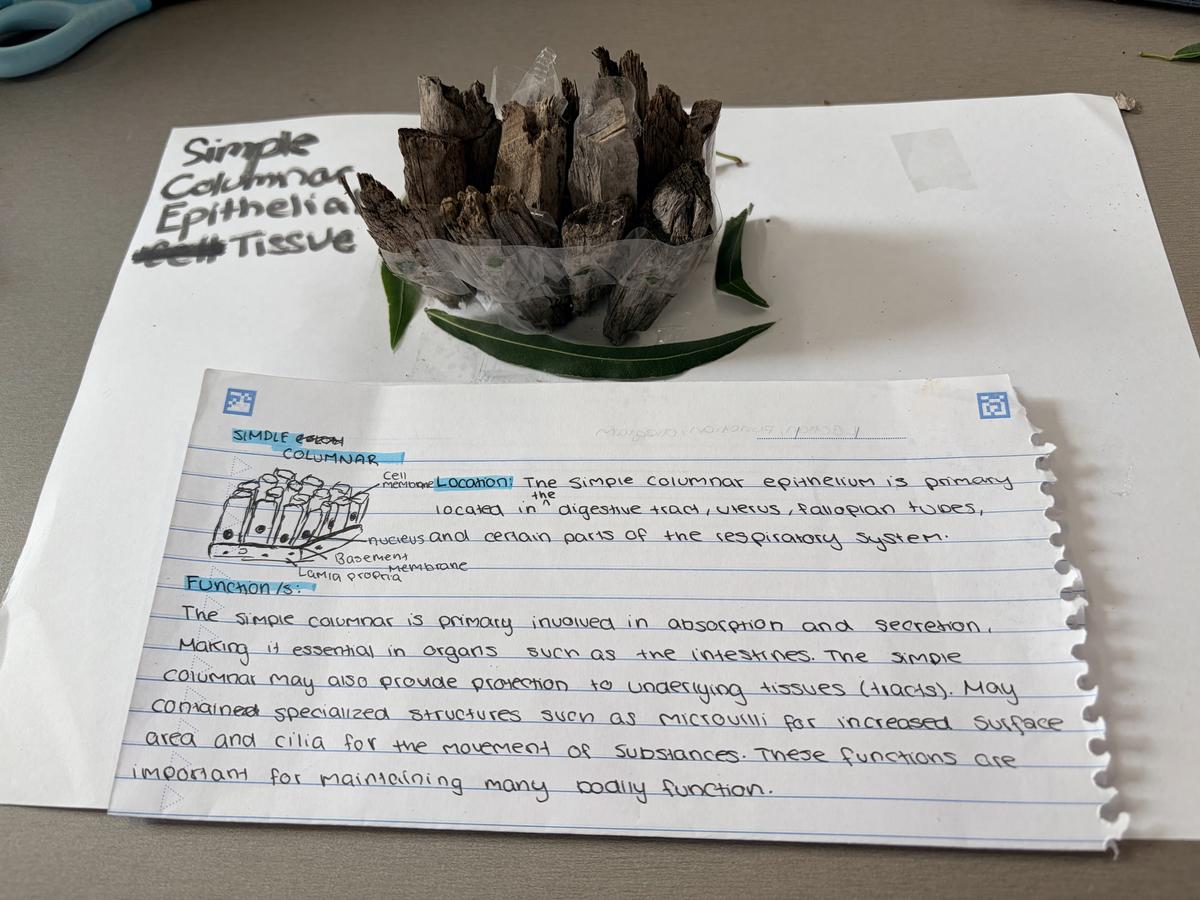 Simple
Columnar
Epithelial
Tissue
SIMPLE
COLUMNAR
Cell
membrane
nucleus
Basement
Membrane
Lamia propria
Location: The simple columnar epithelium is primary
located in the digestive tract, uterus, fallopian tubes,
and certain parts of the respiratory system.
Function/s:
The simple columnar is primary involved in absorption and secretion.
Making it essential in organs such as the intestines. The simple
columnar may also provide protection to underlying tissues (tracts). May
contained specialized structures such as microvilli for increased surface
area and cilia for the movement of substances. These functions are
important for maintaining many bodily function.